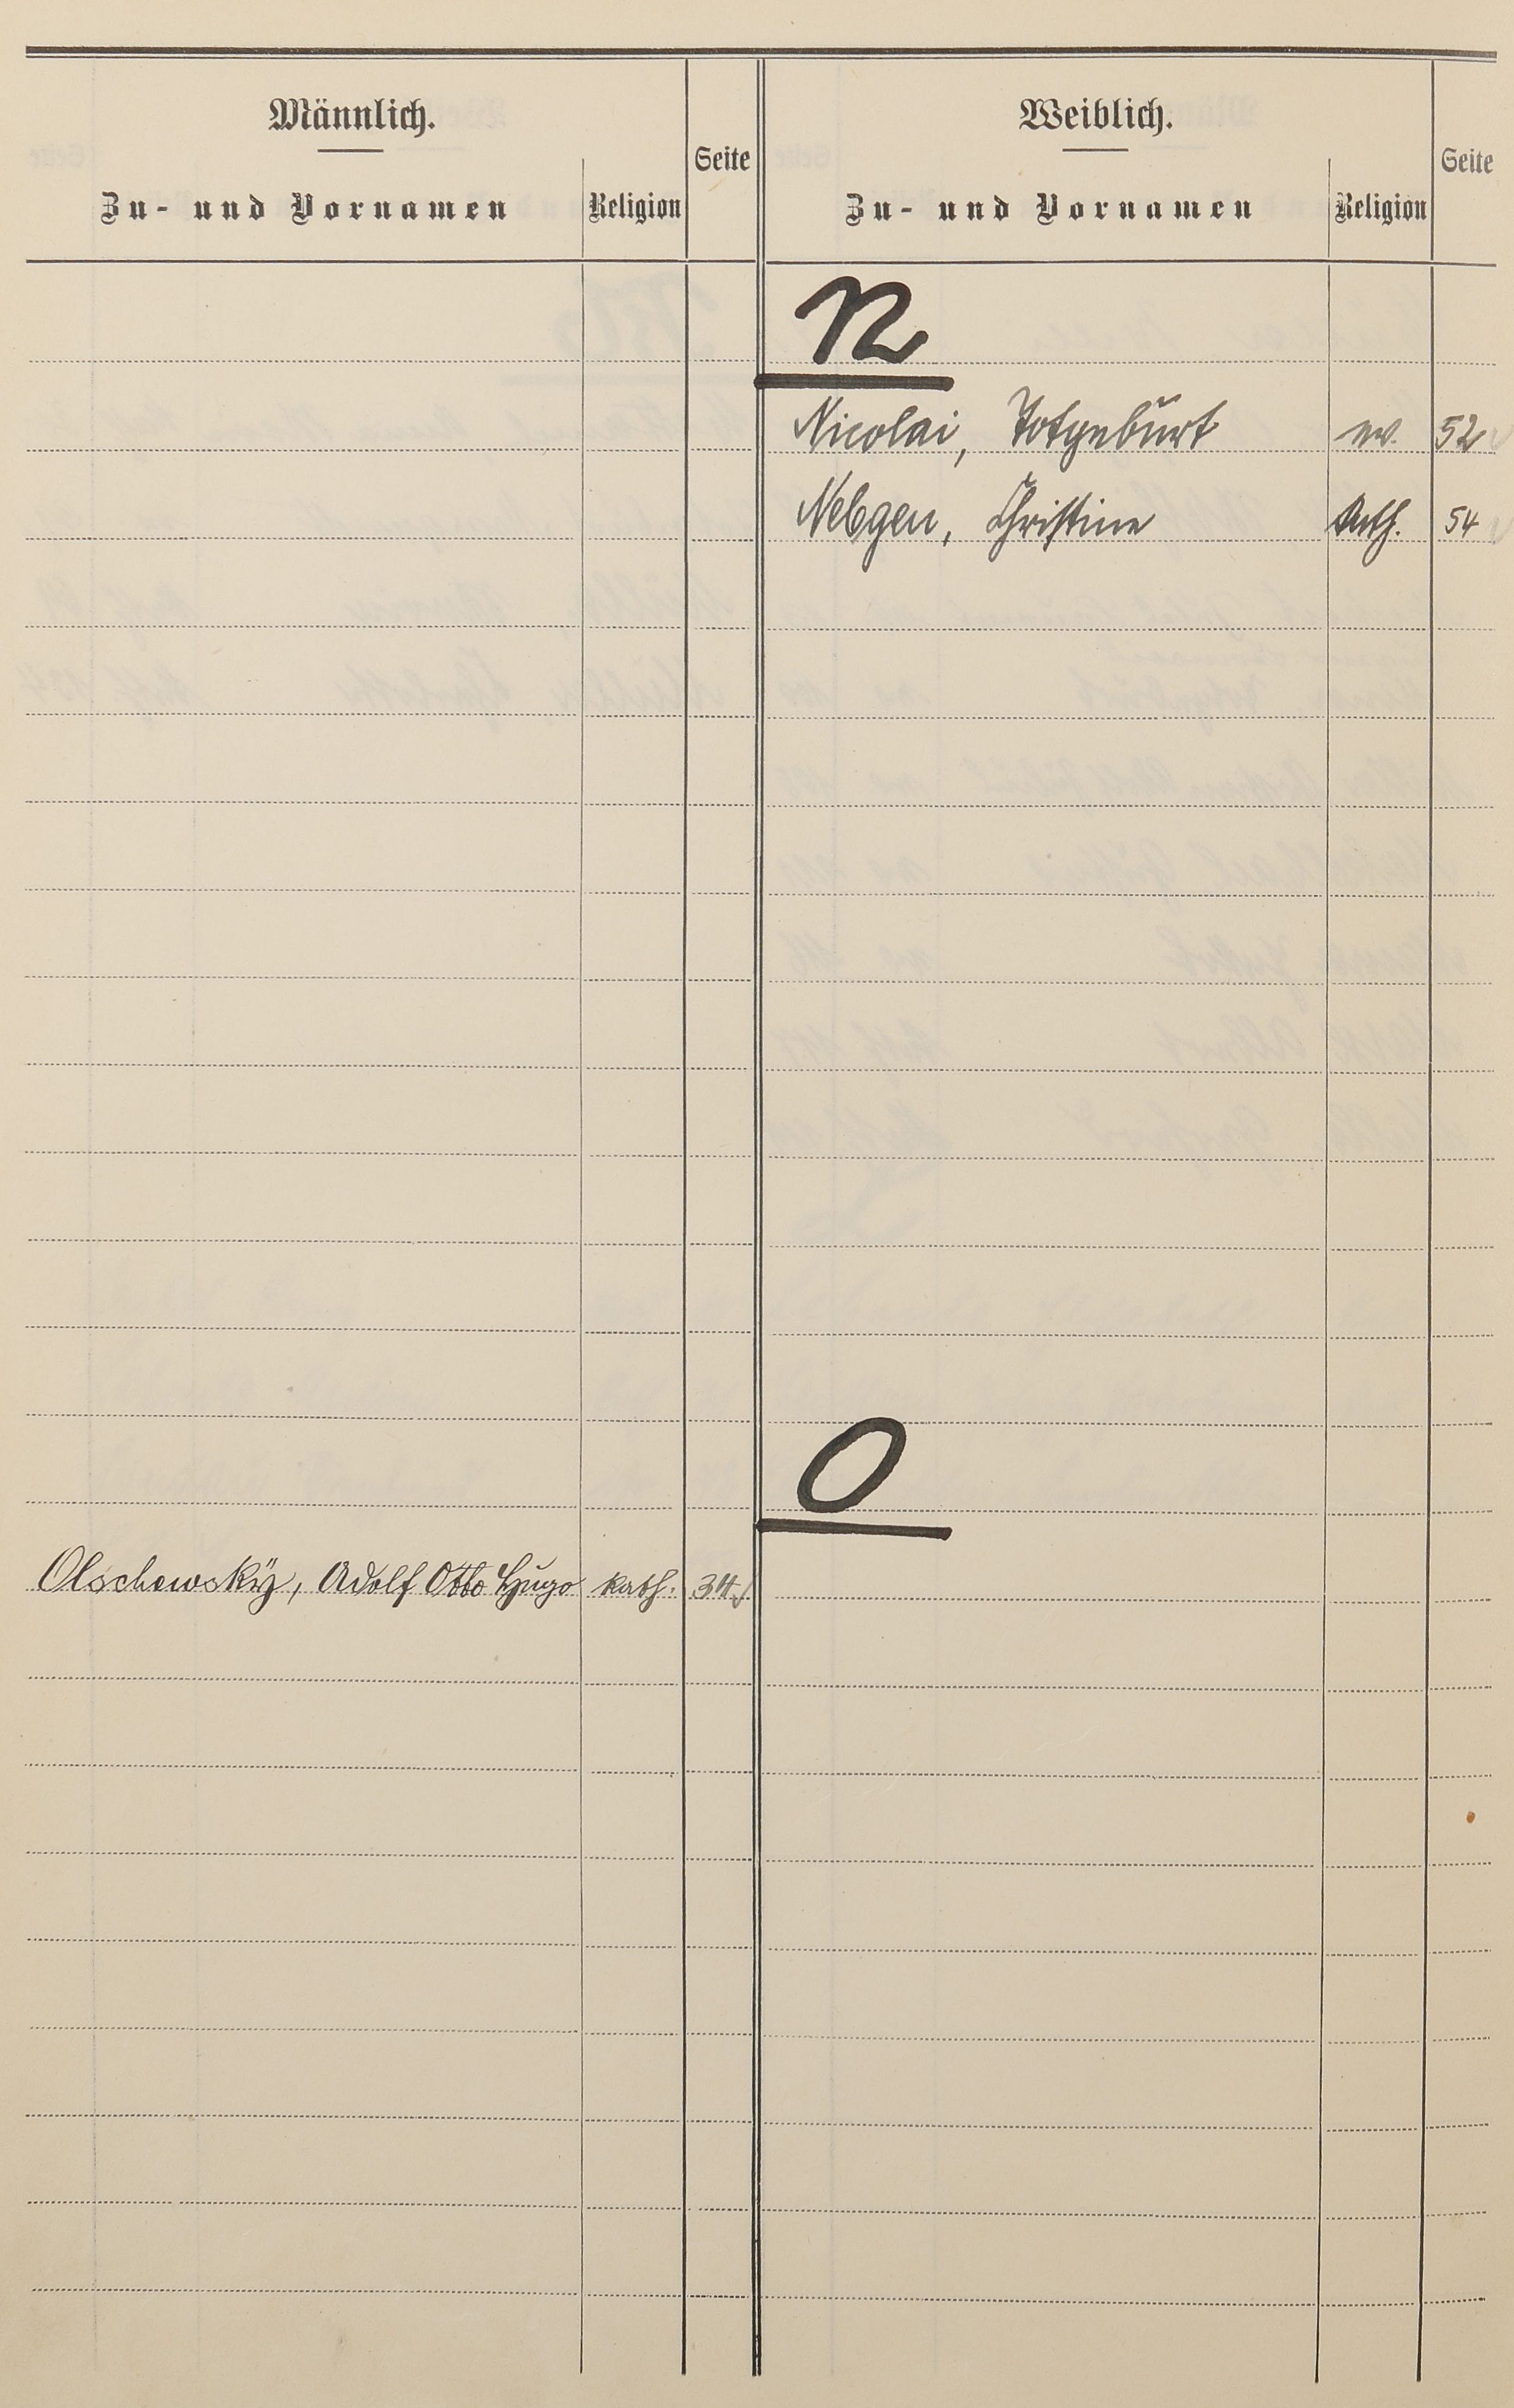 Männlich.
Zu- und Vornamen Religion Seite
Weiblich.
Zu- und Vornamen Religion Seite
N
Nicolai, Totgeburt ev. 52
Nebgen, Christine kath. 54
O
Olschewsky, Adolf Otto Hugo kath. 34 √